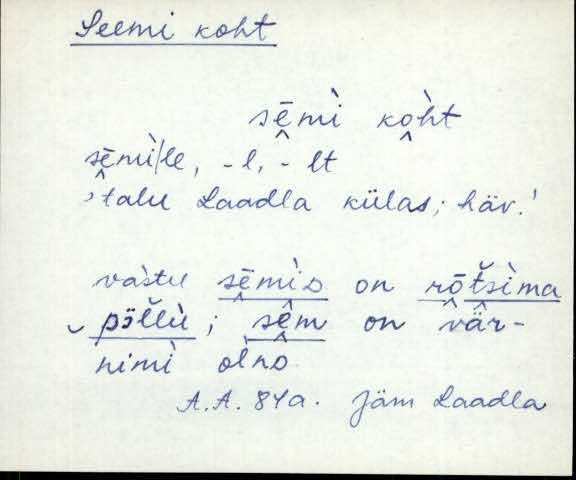 Seemi koht
sē̬mì ko̬h̀t
sē̬mì/le, -l, -lt
'talu Laadla külas; häv.'
vàstu sē̬mìs on rō̬t̆šìma
põl̆lù; sē̬m on vä̬r-
nimì ol̀nd
A.A. 84a. Jäm Laadla